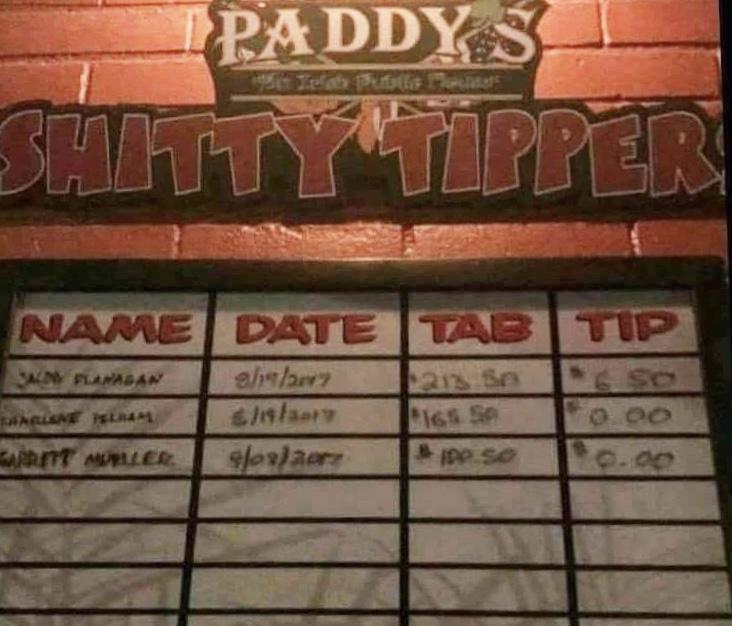 PADDY'S
An Irish Public House
SHITTY TIPPERS
NAME DATE TAB TIP
FLANAGAN 8/19/2017 $213.50 $6.50
CHARLENE PELHAM 8/19/2017 $165.50 $0.00
GARRETT MUELLER 9/08/2017 $100.50 $0.00